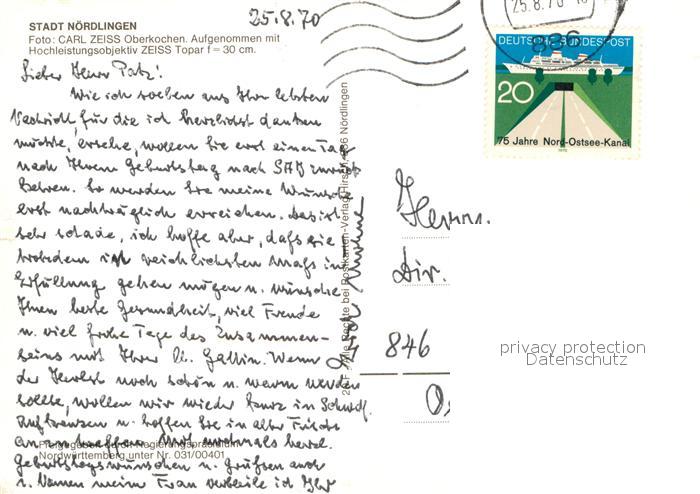 25.8.70
STADT NÖRDLINGEN
Foto: CARL ZEISS Oberkochen. Aufgenommen mit
Hochleistungsobjektiv ZEISS Topar f = 30 cm.
Lieber Herr Patz!
Wie ich soeben aus Ihrer letzten
Nachricht, für die ich herzlichst danken
möchte, ersehe, wollen Sie erst einen Tag
nach Ihrem Geburtstag nach zurück
kehren. So werden Sie meine Wünsche
erst nachträglich erreichen. Das ist
sehr schade, ich hoffe aber, daß sie
trotzdem in reichlichstem Maß in
Erfüllung gehen mögen u. wünsche
Ihnen beste Gesundheit, viel Freude
u. viel frohe Tage des Zusammen-
seins mit Ihrer lb. Gattin. Wenn
der Herbst noch schön u. warm werden
sollte, wollen wir wieder kurz in
u. hoffen Sie in alter Frische
anzutreffen. Mit nochmals herzl.
Geburtstagswünschen u. Grüßen auch
i. Namen meiner Frau verbleibe ich Ihr
Freigegeben durch Regierungspräsidium
Nordwürttemberg unter Nr. 031/00401
Alle Rechte bei Postkarten-Verlag Hirsch, 886 Nördlingen
25.8.70
886
DEUTSCHE BUNDESPOST
20
75 Jahre Nord-Ostsee-Kanal
1970
Herrn
Dir.
846
privacy protection
Datenschutz